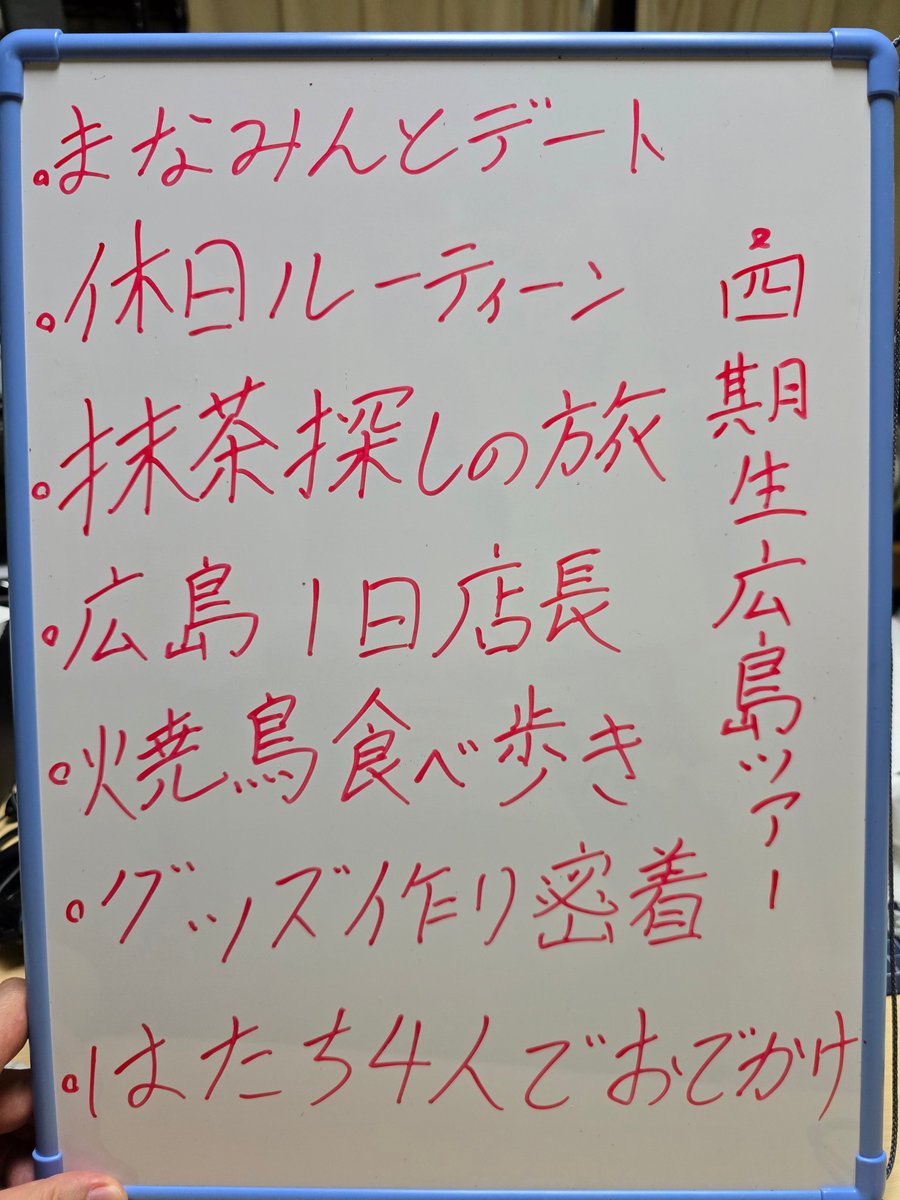 ・まなみんとデート
・休日ルーティーン
・抹茶探しの旅
・広島1日店長
・焼鳥食べ歩き
・グッズ作り密着
・はたち4人でおでかけ
・四期生広島ツアー